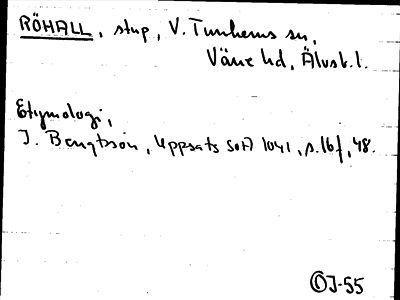 RÖHALL, stup, V. Tunhems sn,
Väne hd, Älvsb. l.
Etymologi,
J. Bengtsson, Uppsats SOA 1041, s. 16f, 48.
OJ-55